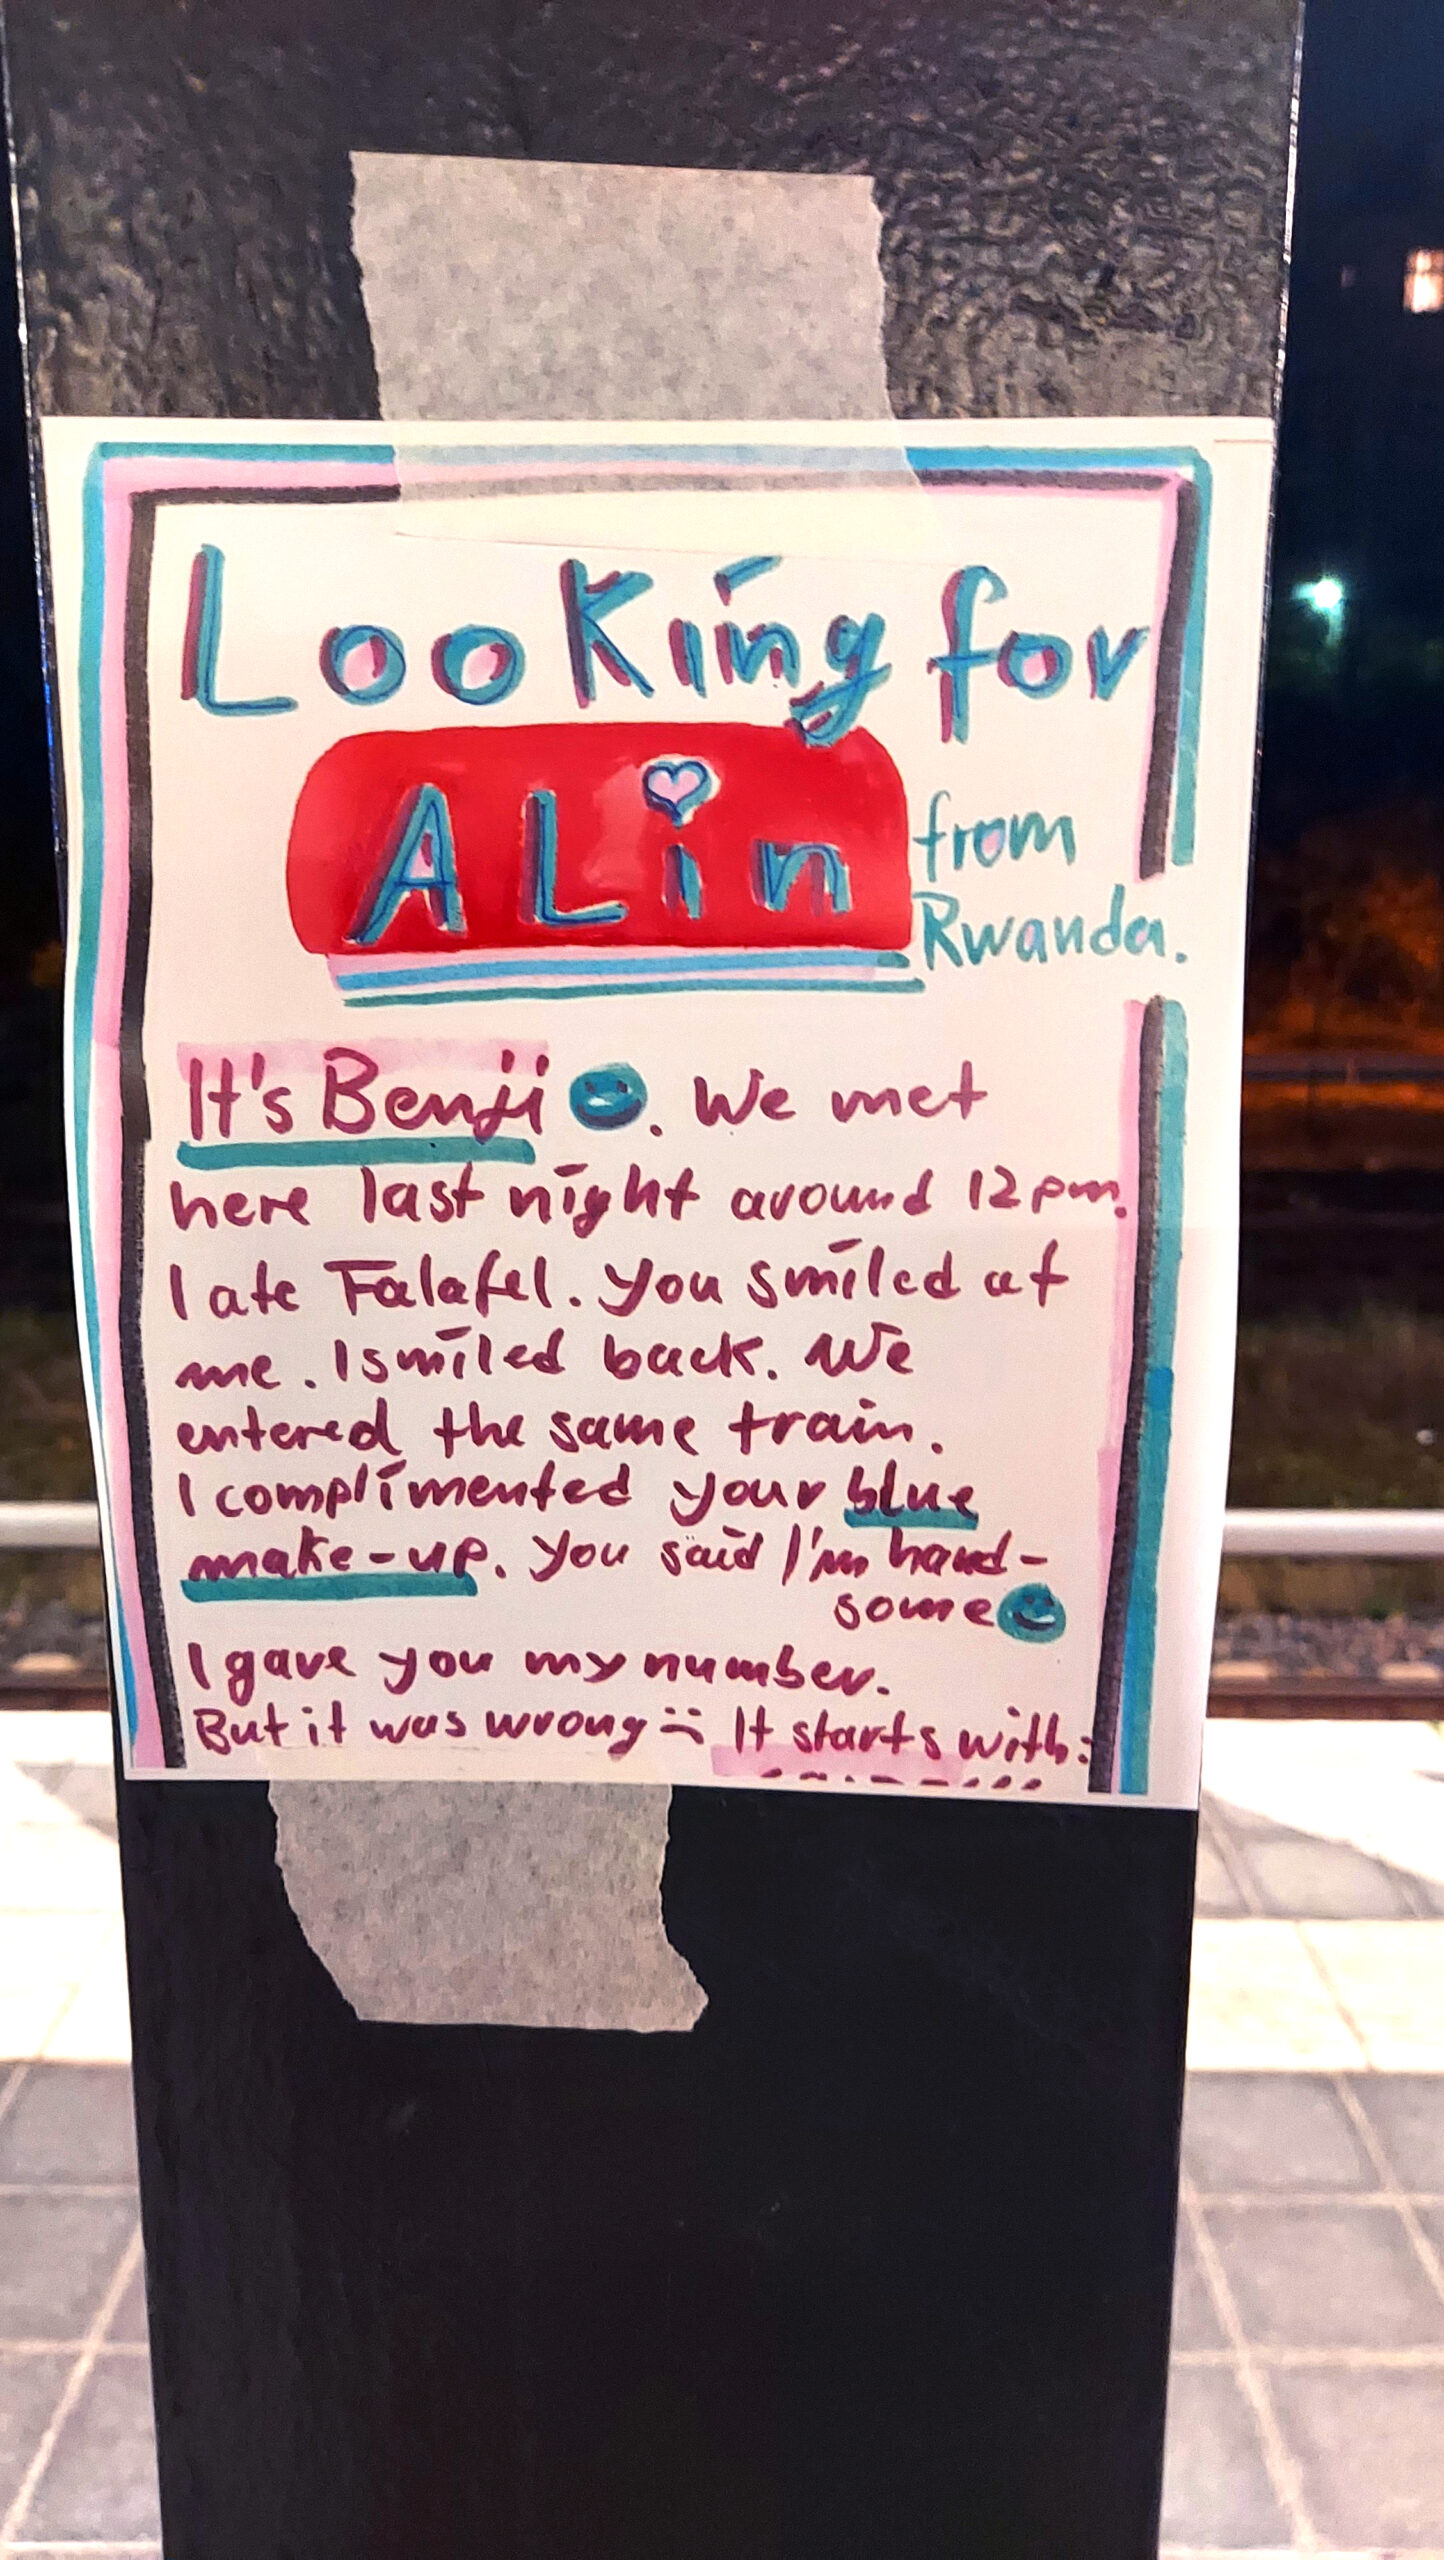 Looking for
ALin from
Rwanda.
It's Benji. We met
here last night around 12pm.
I ate Falafel. You smiled at
me. I smiled back. We
entered the same train.
I complimented your blue
make-up. You said I'm hand-
some
I gave you my number.
But it was wrong :( It starts with: